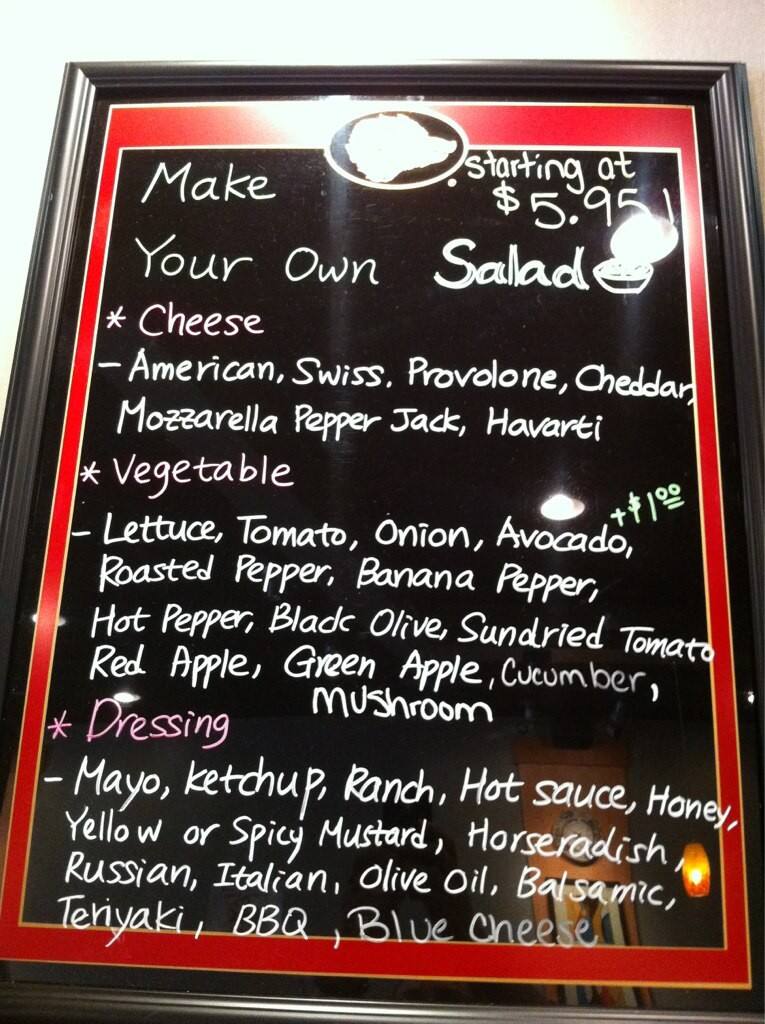 Make
starting at
$5.95!
Your Own Salad
* Cheese
- American, Swiss. Provolone, Cheddar,
Mozzarella Pepper Jack, Havarti
* Vegetable
+$1.00
- Lettuce, Tomato, Onion, Avocado,
Roasted Pepper, Banana Pepper,
Hot Pepper, Black Olive, Sundried Tomato
Red Apple, Green Apple, Cucumber,
Mushroom
* Dressing
- Mayo, ketchup, Ranch, Hot sauce, Honey,
Yellow or Spicy Mustard, Horseradish,
Russian, Italian, Olive Oil, Balsamic,
Teriyaki, BBQ, Blue Cheese